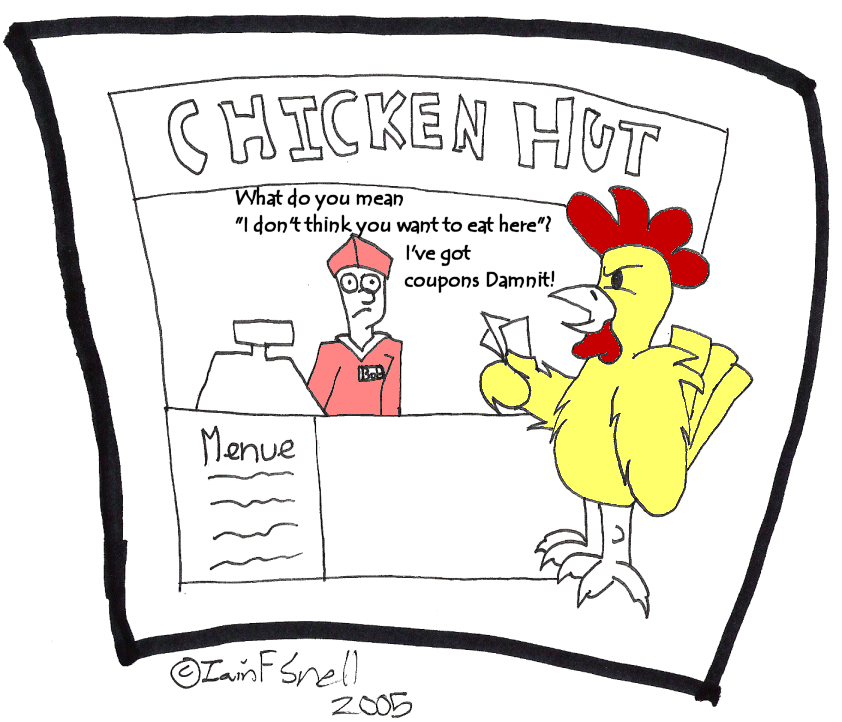 CHICKEN HUT
What do you mean
"I don't think you want to eat here"?
I've got
coupons Damnit!
Bob
Menue
©Iain F Snell
2005